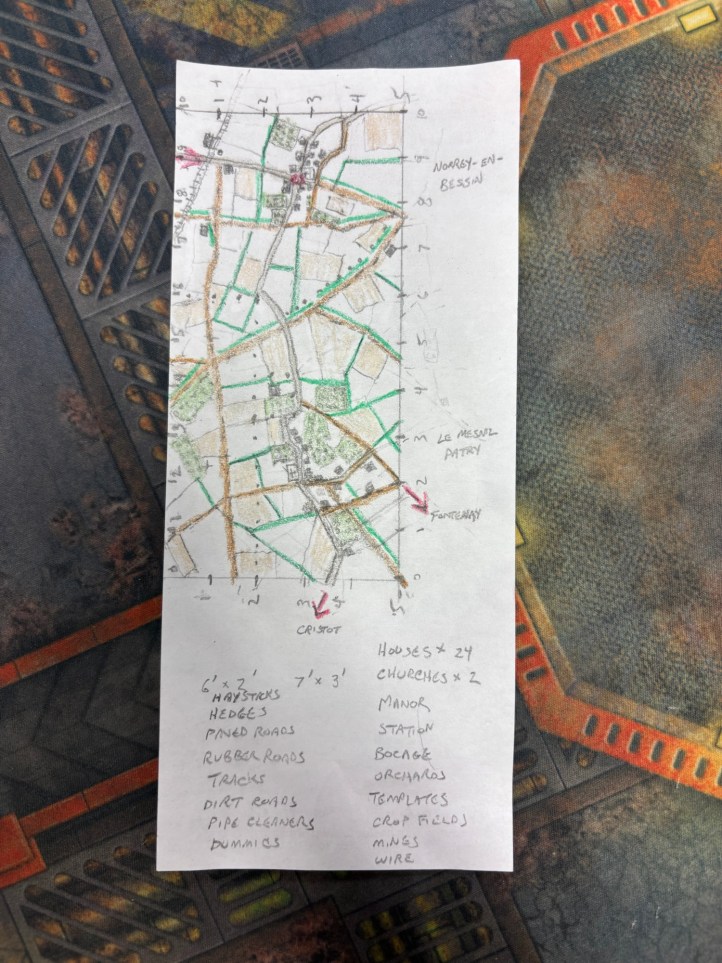 10
1
2
3
4
5
10
9
NORREY-EN-
BESSIN
8
8
7
6
6
5
5
4
4
3
3
LE MESNIL
PATRY
2
2
FONTENAY
1
1
0
0
1
2
3
4
5
CRISTOT
HOUSES × 24
6' × 2' 7' × 3'
CHURCHES × 2
HAYSTACKS
MANOR
HEDGES
STATION
PAVED ROADS
BOCAGE
RUBBER ROADS
ORCHARDS
TRACKS
TEMPLATES
DIRT ROADS
CROP FIELDS
PIPE CLEANERS
MINES
DUMMIES
WIRE